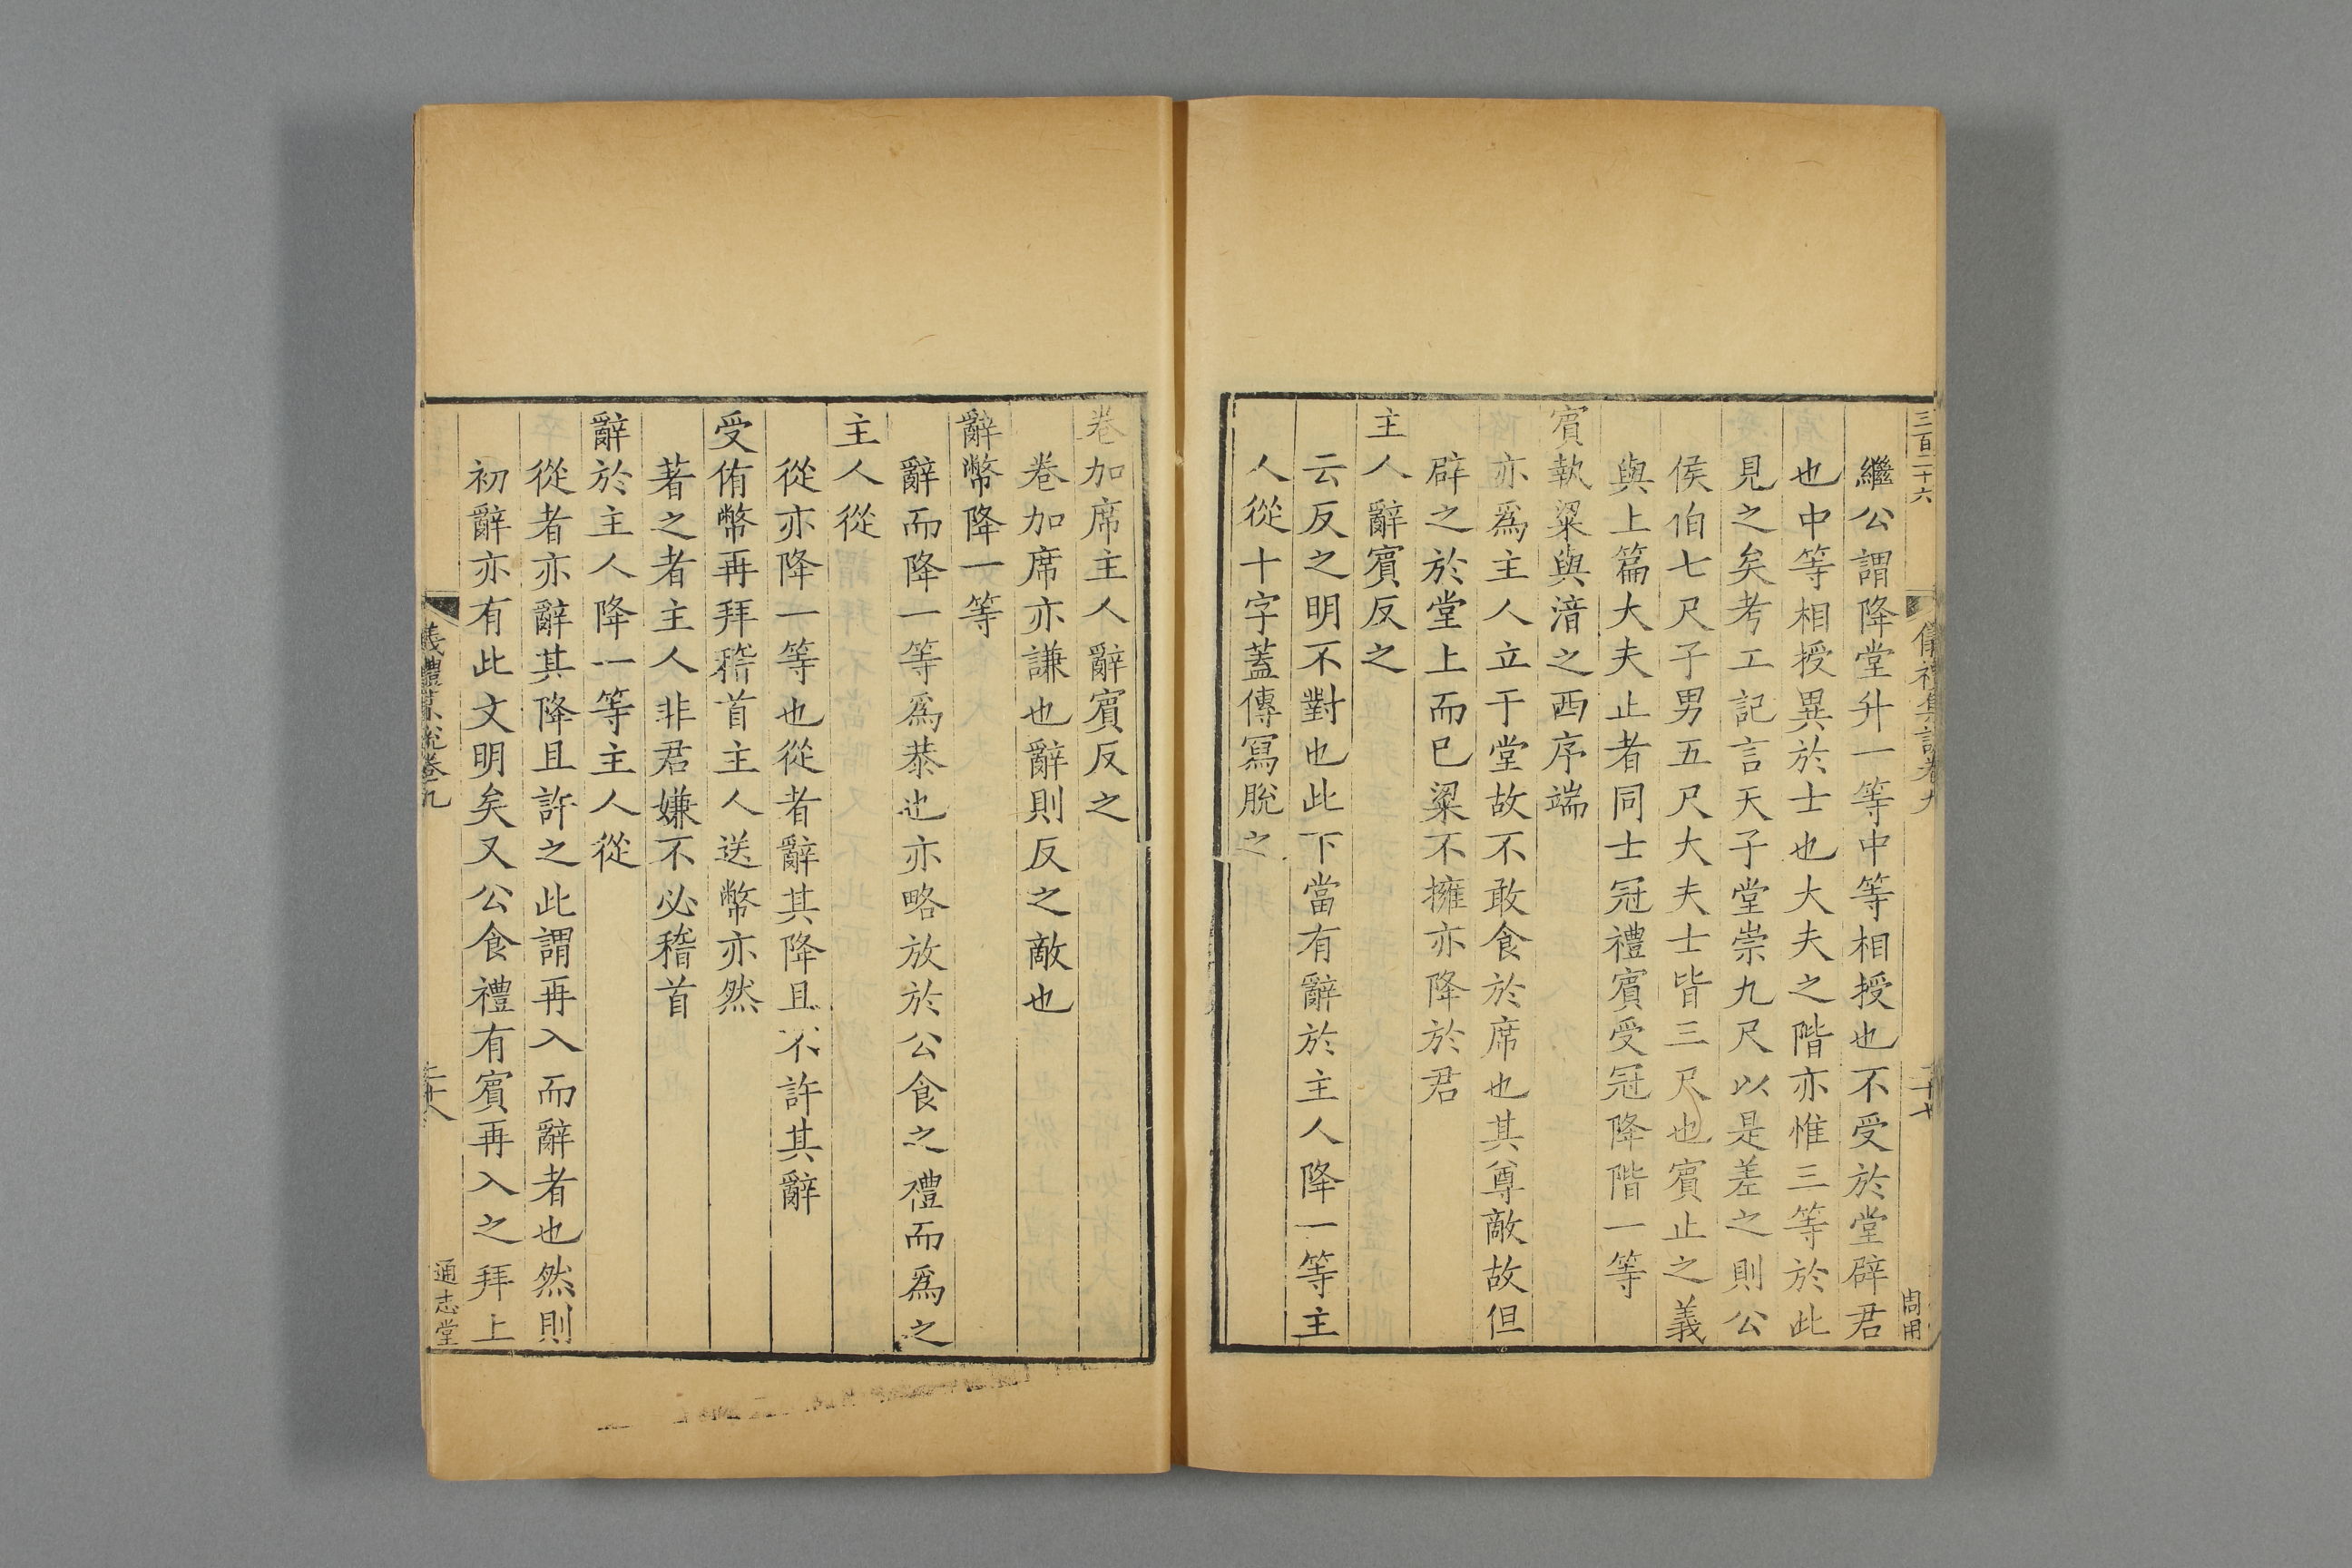 三百二十六
儀禮集說卷九
二十七
周用
繼公謂降堂升一等中等相授也不受於堂辟君
也中等相授異於士也大夫之階亦惟三等於此
見之矣考工記言天子堂崇九尺以是差之則公
侯伯七尺子男五尺大夫士皆三尺也賓止之義
與上篇大夫止者同士冠禮賓受冠降階一等
賓執粱與湆之西序端
亦爲主人立于堂故不敢食於席也其尊敵故但
辟之於堂上而已粱不擁亦降於君
主人辭賓反之
云反之明不對也此下當有辭於主人降一等主
人從十字蓋傳寫脫之
卷加席主人辭賓反之
卷加席亦謙也辭則反之敵也
辭幣降一等
辭而降一等爲恭也亦略放於公食之禮而爲之
主人從
從亦降一等也從者辭其降且不許其辭
受侑幣再拜稽首主人送幣亦然
著之者主人非君嫌不必稽首
辭於主人降一等主人從
從者亦辭其降且許之此謂再入而辭者也然則
初辭亦有此文明矣又公食禮有賓再入之拜上
儀禮集說卷九
通志堂